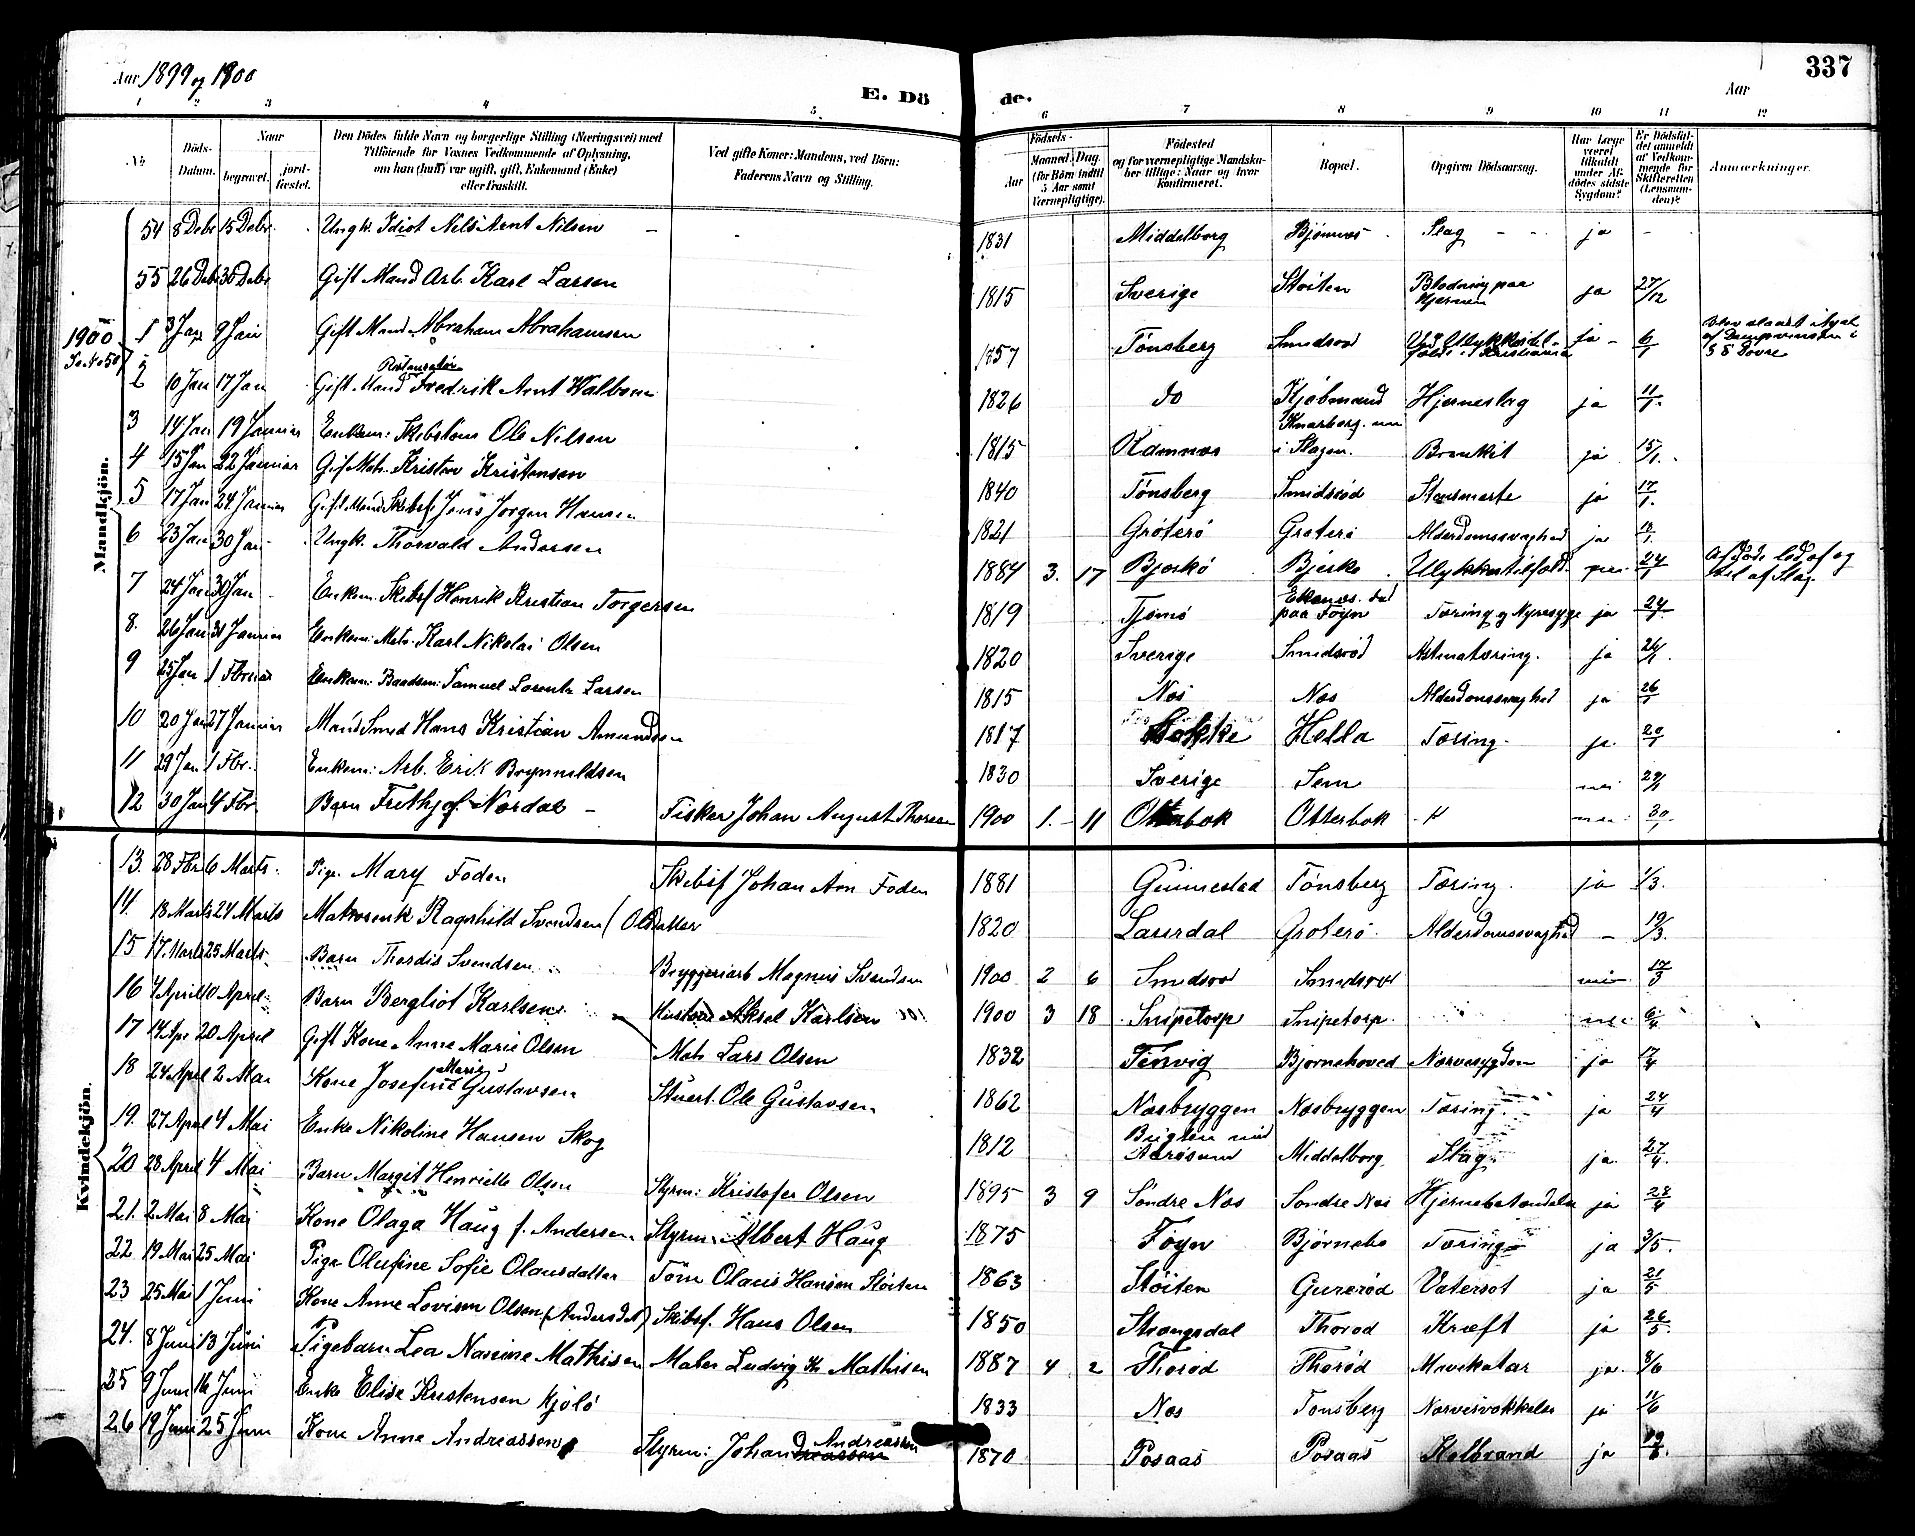 Aar 1899 og 1900
E. Dö
de.
Aar
337
1 2 3 4 5 6 7 8 9 10 11 12
No
Döds-
Datum.
Naar
begravet.
jord-
fæstet.
Den Dödes fulde Navn og borgerlige Stilling (Næringsvei) med
Tilföiende for Voxnes Vedkommende af Oplysning,
om han (hun) var ugift, gift, Enkemand (Enke)
eller fraskilt.
Ved gifte Koner: Mandens, ved Börn:
Faderens Navn og Stilling.
Födsels-
Aar
Maaned. Dag.
(for Börn indtil
5 Aar samt
Værnepligtige).
Födested
og for værnepligtige Mandska-
ber tillige: Naar og hvor
konfirmeret.
Bopæl.
Opgiven Dödsaarsag.
Har Læge
været
tilkaldt
under Af-
dödes sidste
Sygdom?
Er Dödsfal-
det anmeldt
af Vedkom-
mende for
Skifteretten
(Lensman-
den)?
Anmærkninger.
Mandkjön.
54 8 Debr 15 Debr. Ungk. Idiot Nils Arnt Nilsen 1831 Middelborg Bjönnes Slag ja
55 26 Debr 30 Debr Gift Mand Arb. Karl Larsen 1815 Sverige Stoiten Blodning paa Hjernen ja 27/12
1900
1 3 Jan 9 Jan Gift Mand Abraham Abrahamsen 1857 Tönsberg Smidsrod Ved Ulykkestil-
fælde i Kristiania ja 6/1 Blev slaaet ihjel
af Dampvinsten i
SS Dovre
2 10 Jan 17 Jan Gift Mand Fredrik Arnt Walbom 1826 do Kjöbmand Hjerneslag ja 11/1
3 14 Jan 19 Januar Enkem: Skibstöm Ole Nilsen 1815 i Slagen. Bronkit ja 15/1
4 15 Jan 22 Januar Gift Matr. Kristen Kristensen 1840 Tönsberg Smidsröd ja 17/1
5 17 Jan 24 Januar Gift Mand Skibsf Jens Jorgen Hansen 1821 Gröterö Groterö Alderdomssvaghed ja
6 23 Jan 30 Jan Ungk. Thorvald Andersen 1884 3. 17 Bjerkö Bjerkö Ulykkestilfæld. nei 24/1 Afdöde led af og
til af Slag
7 24 Jan 30 Jan Enkem. Skibsf Henrik Kristian Torgersen 1819 Tjömö Ekenes. död
paa Föyn Tæring og Nyresyge ja 24/1
8. 26 Jan 31 Januar Enkem: Matr. Karl Nikolai Olsen 1820 Sverige Smidsröd Astmatæring. ja 26/1
9 25 Jan 1 Februar Enkem: Baadsm: Samuel Lorentz Larsen 1815 Nes Nes Alderdomssvaghed ja 26/1
10 20 Jan 27 Januar Mand Smed Hans Kristian Amundsen 1817 Bakke Hella Tæring. ja 20/1
11 29 Jan 1 Fbr. Enkem: Arb. Erik Brynnildsen 1830 Sverige Sem nei 29/1
12 30 Jan 4 Fbr. Barn Frithjof Nordal Fisker Johan August Thoresen 1900 1. 11 Otterbek Otterbek nei 30/1
Kvindekjön.
13. 28 Fbr 6 Marts. Pige Mary Foden Skibsf Johan Arn Foden 1881 Gunnestad Tönsberg Tæring ja 1/3.
14. 18 Marts 24 Marts Matrosenk Ragnhild Svendsen (Olsdatter 1820 Laurdal Groterö Alderdomssvaghed 19/3.
15 17. Marts 25 Marts. Barn Thordis Svendsen Bryggeriarb Magnus Svendsen 1900 2 6 Smidsrod Smidsrod nei 17/3
16 4 April 10 April Barn Bergliot Karlsen Aksel Karlsen 1900 3 18 Snipetorp Snipetorp nei 6/4
17 14 Apr 20 April Gift Kone Anne Marie Olsen Matr. Lars Olsen 1832 Tenvig Bjornehoved Nervesygdom ja 17/4
18 24 April 2 Mai Kone Josefine Marie Gustavsen Stuert. Ole Gustavsen 1862 Nesbryggen Nesbryggen Tæring ja 24/4
19. 27 April 4 Mai Enke Nikoline Hansen Skog 1812 Middelborg Slag ja 27/4.
20 28 April 4 Mai Barn Margit Henriette Olsen Styrm: Kristofer Olsen 1895 3 9 Söndre Nes Sondre Nes Hjernebetændelse ja 28/4
21. 2 Mai 8 Mai Kone Olaga Haug f. Andersen Styrm: Albert Haug 1875 Föyn Björnebo Tæring ja 3/5.
22 19 Mai 25 Mai Pige Olufine Sofie Olausdatter Töm Olaus Hansen Stoiten 1863 Stöiten Gureröd Vatersot ja 21/5
23 25 Mai 1 Juni Kone Anne Lovisen Olsen (Andersdat) Skibsf. Hans Olsen 1850 Strangsdal Thorod Kræft ja 26/5.
24. 8 Juni 13 Juni Pigebarn Lea Narine Mathisen Maler Ludvig Kr Mathisen 1887 4 2 Thoröd Thoröd Mavekatar ja 8/6
25 9 Juni 16 Juni Enke Elise Kristensen Kjölö 1833 Nes Tonsberg ja 11/6
26 19 Juni 25 Juni Kone Anne Andreassen Styrm: Johan Andreassen 1870 Posaas Posaas Kolbrand ja 19/6